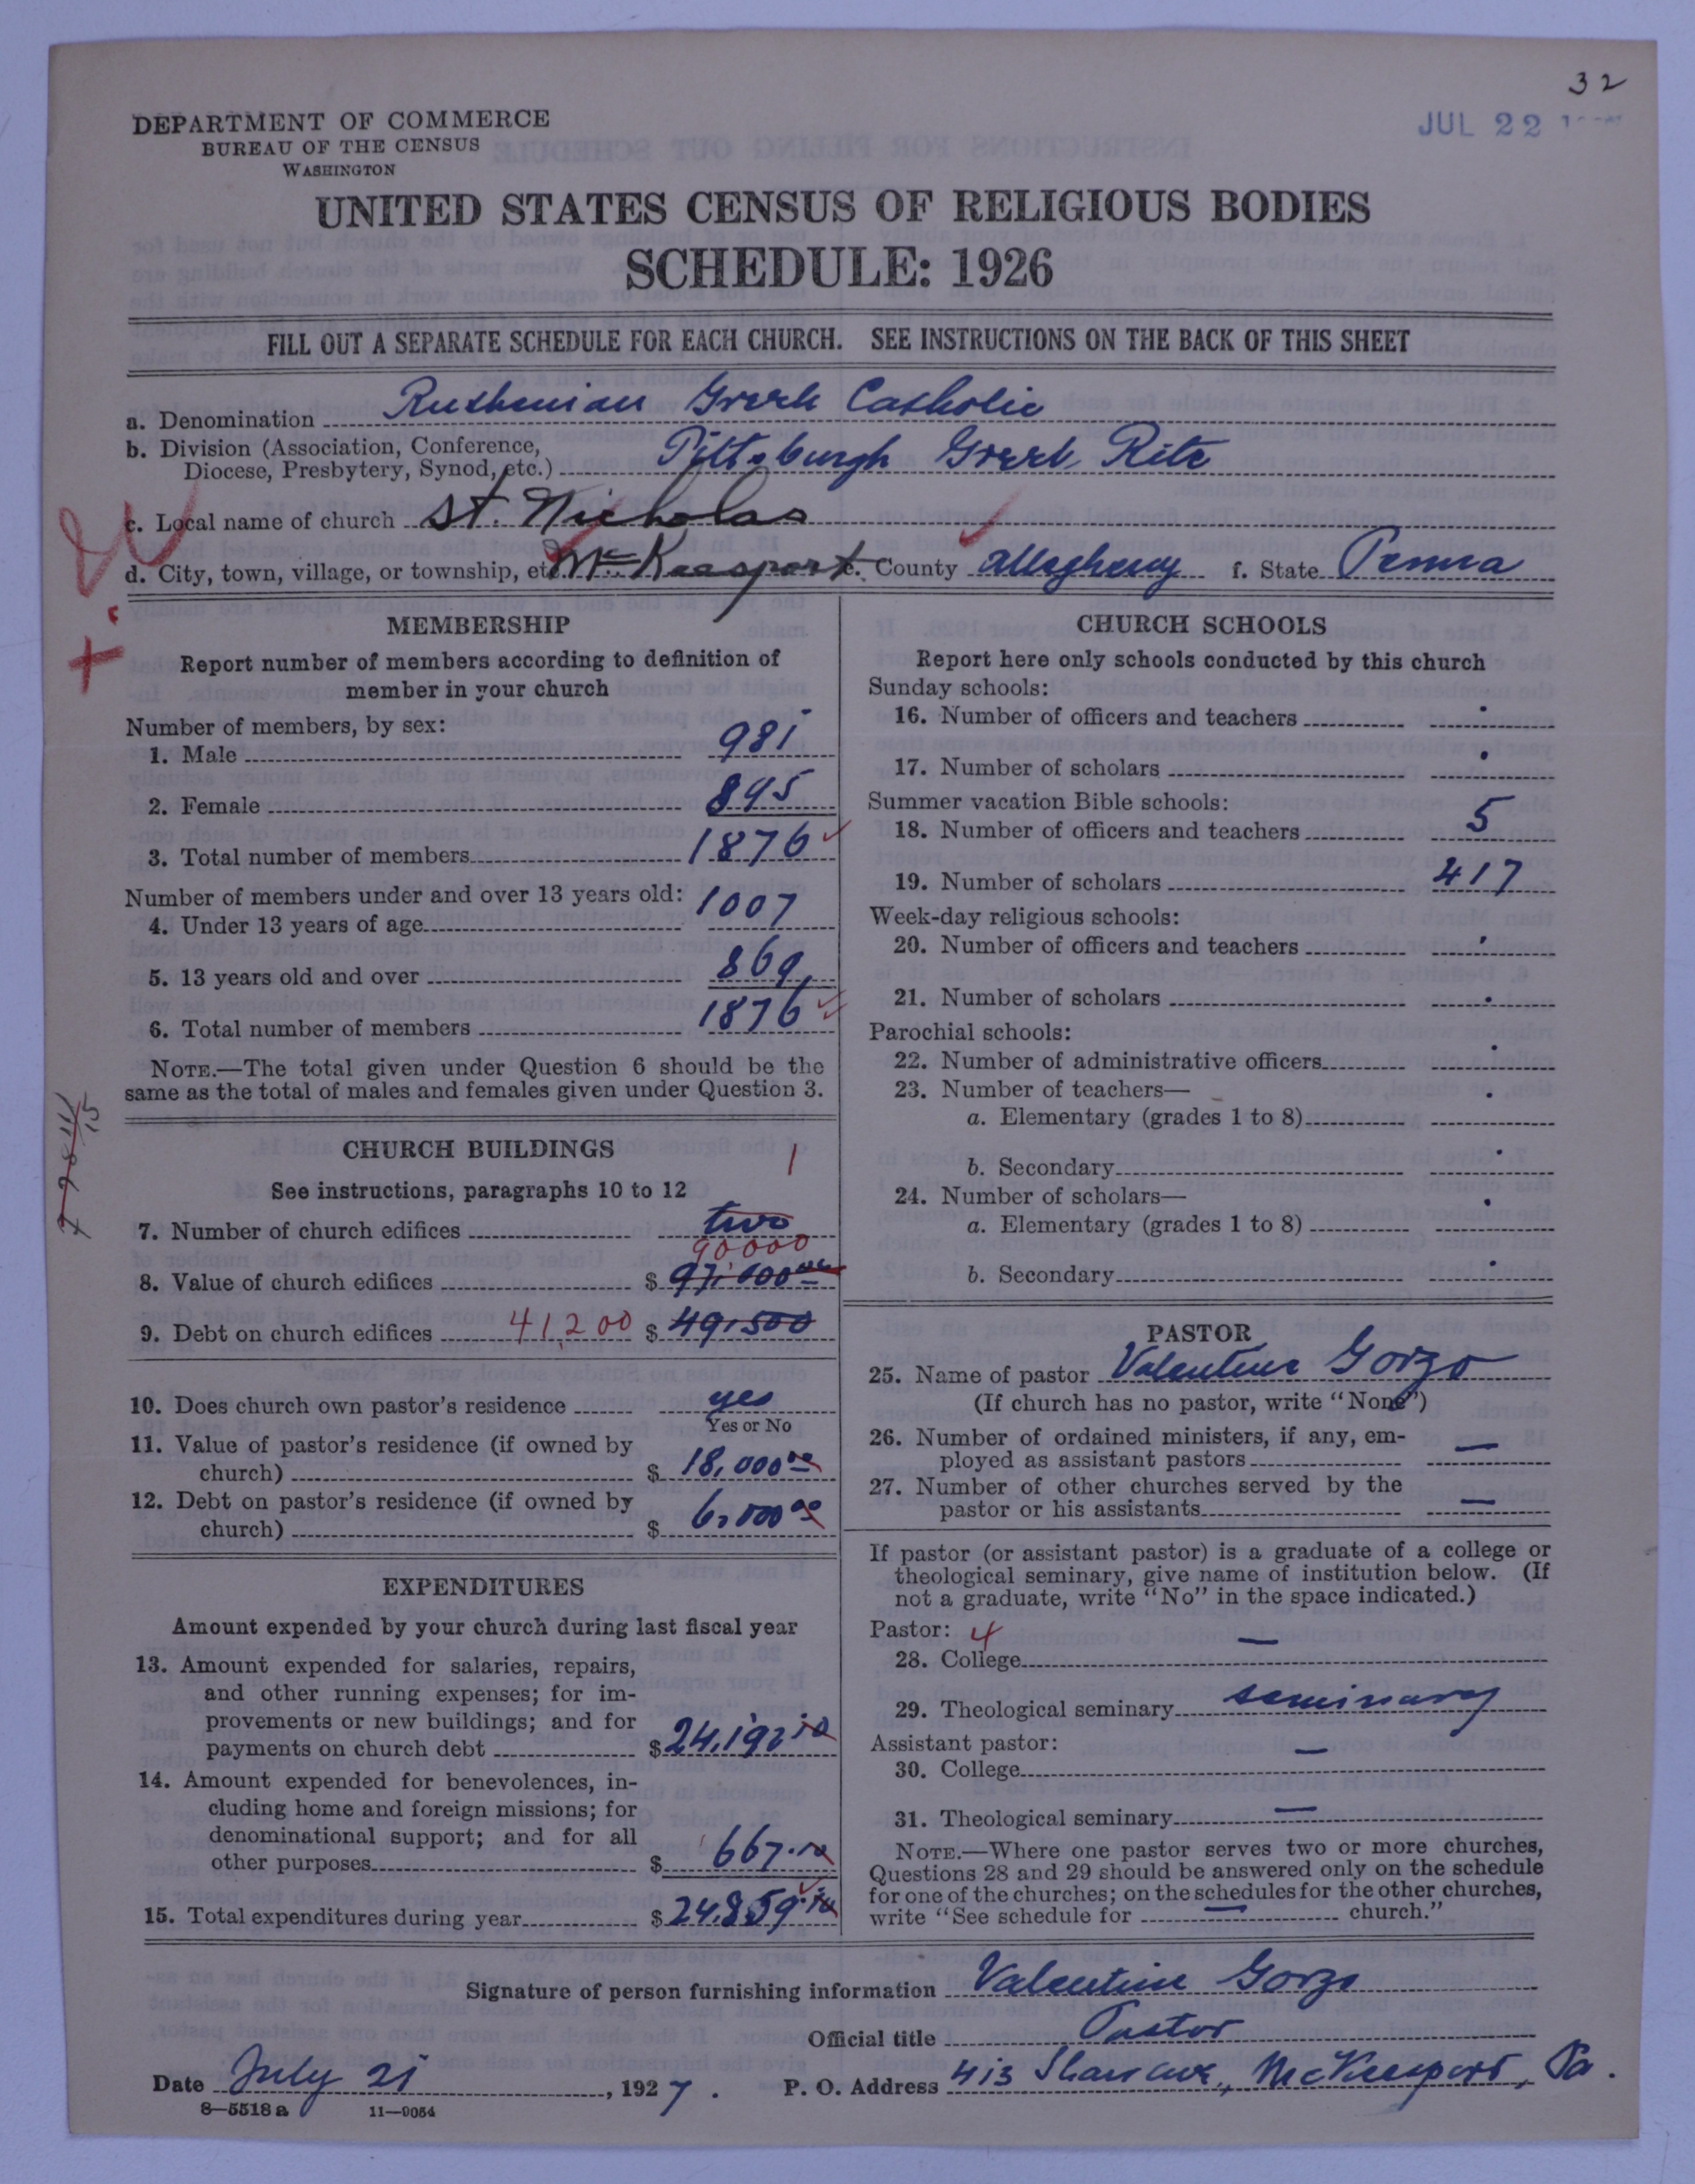 32
JUL 22
DEPARTMENT OF COMMERCE
BUREAU OF THE CENSUS
WASHINGTON
UNITED STATES CENSUS OF RELIGIOUS BODIES
SCHEDULE: 1926
FILL OUT A SEPARATE SCHEDULE FOR EACH CHURCH. SEE INSTRUCTIONS ON THE BACK OF THIS SHEET
a. Denomination Ruthenian Greek Catholic
b. Division (Association, Conference,
Diocese, Presbytery, Synod, etc.) Pittsburgh Greek Rite
c. Local name of church St. Nicholas
d. City, town, village, or township, etc. McKeesport e. County Allegheny f. State Penna
MEMBERSHIP
Report number of members according to definition of
member in your church
Number of members, by sex:
1. Male 981
2. Female 895
3. Total number of members 1876
Number of members under and over 13 years old:
4. Under 13 years of age 1007
5. 13 years old and over 869
6. Total number of members 1876
NOTE.—The total given under Question 6 should be the
same as the total of males and females given under Question 3.
CHURCH BUILDINGS
1
See instructions, paragraphs 10 to 12
7. Number of church edifices two
90000
8. Value of church edifices $ 97,000 00
9. Debt on church edifices 41,200 $ 49,500
10. Does church own pastor's residence yes
Yes or No
11. Value of pastor's residence (if owned by
church) $ 18,000 00
12. Debt on pastor's residence (if owned by
church) $ 6,000 00
EXPENDITURES
Amount expended by your church during last fiscal year
13. Amount expended for salaries, repairs,
and other running expenses; for im-
provements or new buildings; and for
payments on church debt $ 24,192 10
14. Amount expended for benevolences, in-
cluding home and foreign missions; for
denominational support; and for all
other purposes $ 667.10
15. Total expenditures during year $ 24,859
CHURCH SCHOOLS
Report here only schools conducted by this church
Sunday schools:
16. Number of officers and teachers
17. Number of scholars
Summer vacation Bible schools:
18. Number of officers and teachers 5
19. Number of scholars 417
Week-day religious schools:
20. Number of officers and teachers
21. Number of scholars
Parochial schools:
22. Number of administrative officers
23. Number of teachers—
a. Elementary (grades 1 to 8)
b. Secondary
24. Number of scholars—
a. Elementary (grades 1 to 8)
b. Secondary
PASTOR
25. Name of pastor Valentine Gorzo
(If church has no pastor, write "None")
26. Number of ordained ministers, if any, em-
ployed as assistant pastors —
27. Number of other churches served by the
pastor or his assistants —
If pastor (or assistant pastor) is a graduate of a college or
theological seminary, give name of institution below. (If
not a graduate, write "No" in the space indicated.)
Pastor: 4
28. College —
29. Theological seminary seminary
Assistant pastor:
30. College —
31. Theological seminary —
NOTE.—Where one pastor serves two or more churches,
Questions 28 and 29 should be answered only on the schedule
for one of the churches; on the schedules for the other churches,
write "See schedule for — church."
Signature of person furnishing information Valentine Gorzo
Official title Pastor
Date July 21, 1927. P. O. Address 413 Shaw ave., McKeesport, Pa.
8—5518a 11—9054